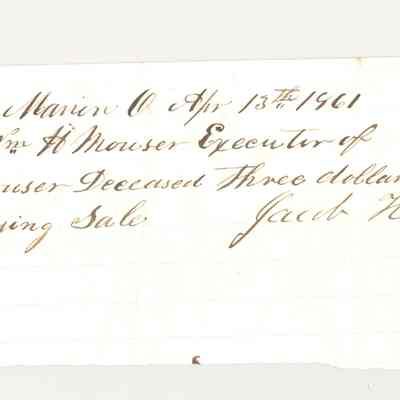 Marion O Apr 13th 1861
Wm H Mouser Executor of
user Deceased Three dollar
ing Sale Jacob H